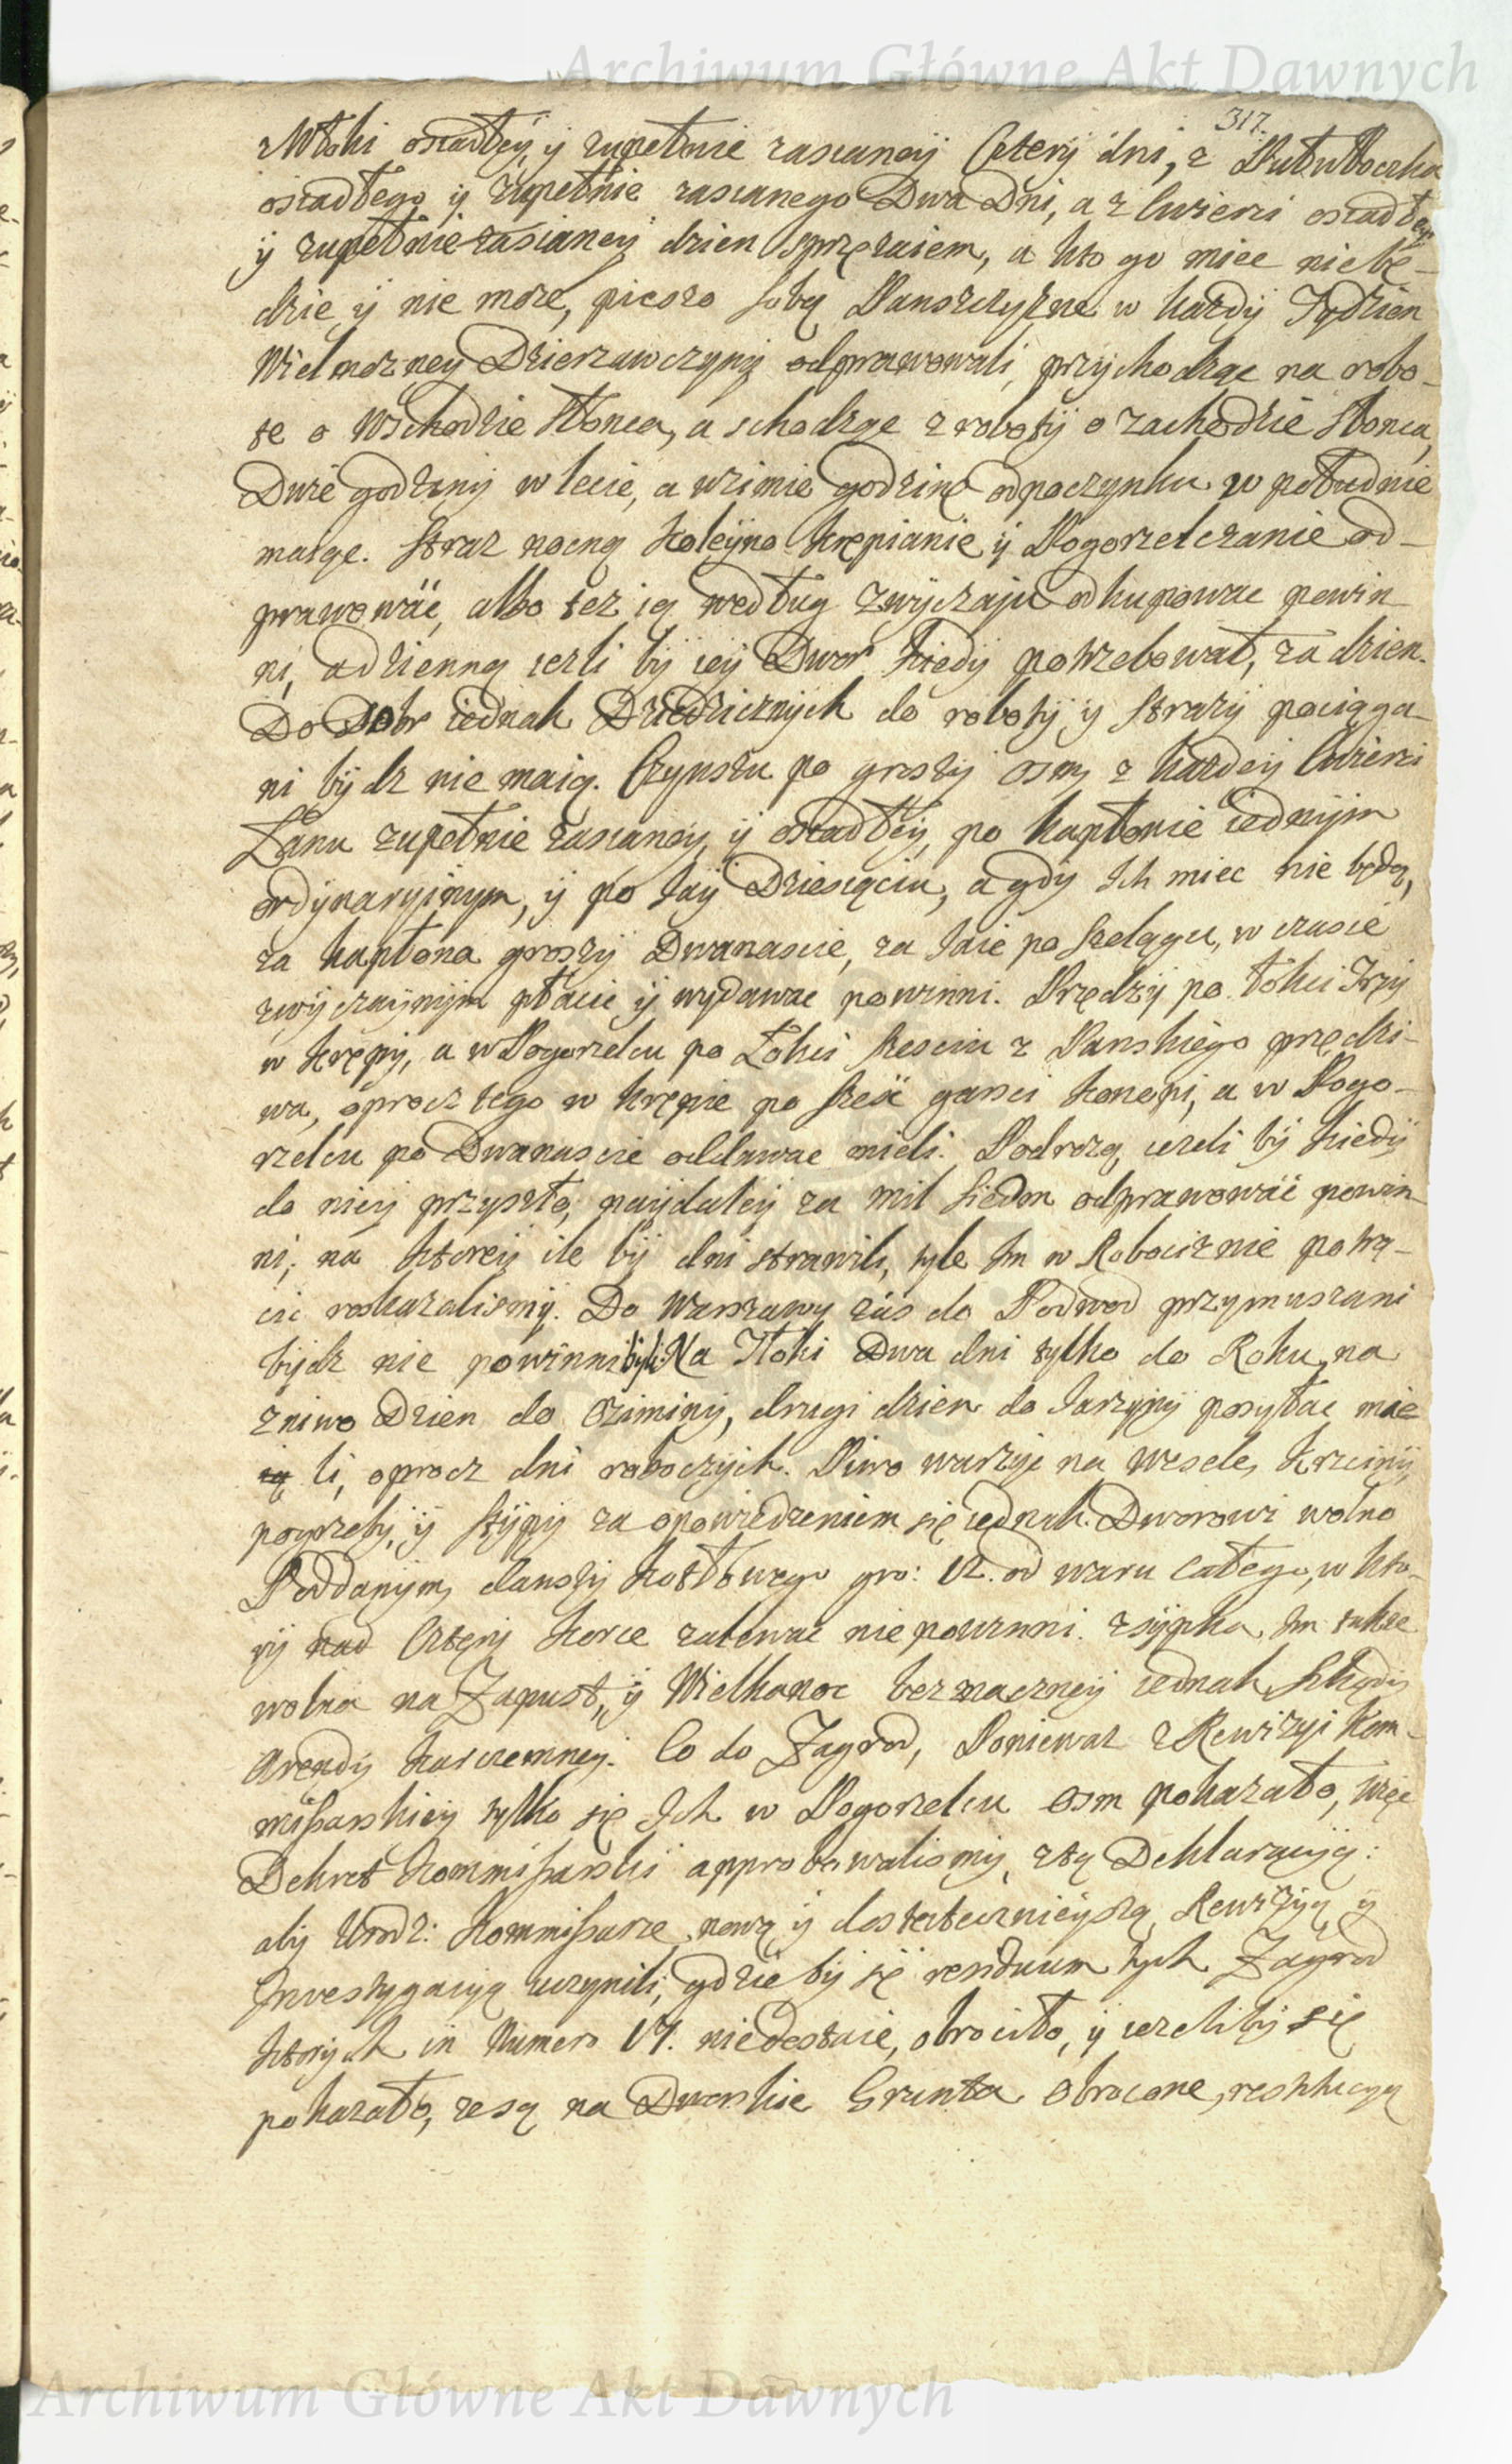 Archiwum Główne Akt Dawnych
317.
z Włoki osiadłey, y zupełnie zasianey Cztery dni, z Pułwłoczka
osiadłego y zupełnie zasianego Dwa Dni, a z Cwierci osiadłey
y zupełnie zasianey dzien sprzęzaiem, a kto go miec niebę-
dzie y nie moze, pieszo sobą Panszczyznę w kazdy Tydzien
Wielmozney Dzierzawczyny odprawowali, przychodząc na robo-
tę o Wschodzie Słonca, a schodząc z roboty o zachodzie Słonca,
Dwie godziny w lecie, a wzimie godzinę odpoczynku w południe
maiąc. Straz nocną koleyno Krępianie y Pogorzelczanie od-
prawowáć, albo tez ią według zwyczaju odkupowac powin-
ni, a dzienną iezli by iey Dwor kiedy potrzebował, za dzien.
Do Dobr iednak Dziedzicznych do roboty y Strazy pociąga-
ni bydz nie maią. Czynszu po groszy osm z kazdey Cwierci
Łanu zupełnie zasianey y osiadłey, po kapłonie iednym
ordynaryinym, y po Jay Dziesięciu, a gdy Ich miec nie będą,
za kapłona groszy Dwanascie, za Jaie po szelągu, w czasie
zwyczaynym płacic y wydawac powinni. Przędzy po łokci Trzy
w Krępy, a w Pogorzelcu po Łokci szesciu z Panskiego przędzi-
wa, oprocz tego w Krępie po szesć garsci konopi, a w Pogo-
rzelcu po Dwanascie oddawac mieli. Podrozą, iezeli by kiedy
do niey przyszło, naydaley za mil siedm odprawowáć powin-
ni, na ktorey ile by dni strawili, tyle Im w Robociznie potrą-
cic roskazalismy. Do Warszawy zás do Podwod przymuszani
bydz nie powinni byli. Na Tłoki Dwa dni tylko do Roku, na
zniwo Dzien do Oziminy, drugi dzien do Jarzyny posyłac mie
ią li, oprocz dni roboczych. Piwo warzyc na Wesele, Krzciny,
pogrzeby, y stypy za opowiedzeniem się iednak Dworowi wolno
Poddanym, dawszy kotłowego gro: 12. od waru całego, w kto-
ry nad Cztery korce zalewac nie powinni. zsypka Im takze
wolna na Zapust, y Wielkanoc bez znaczney iednak szkody
Arendy karczemney. Co do Zagrod, Poniewaz z Rewizyi Kom-
missarskiey tylko się Ich w Pogorzelcu osm pokazało, więc
Dekret Kommissarski approbowalismy, z tą Deklaracyią:
aby Urodz: Kommissarze nową y dostatecznieyszą Rewizyą y
Inwestygacyą uczynili, gdzie by się residuum tych Zagrod
ktorych in Numero 17. niedostaie, obrociło, y iezeliby się
pokazało, ze są na Dworskie Grunta obrocone, restitucyą
Archiwum Główne Akt Dawnych